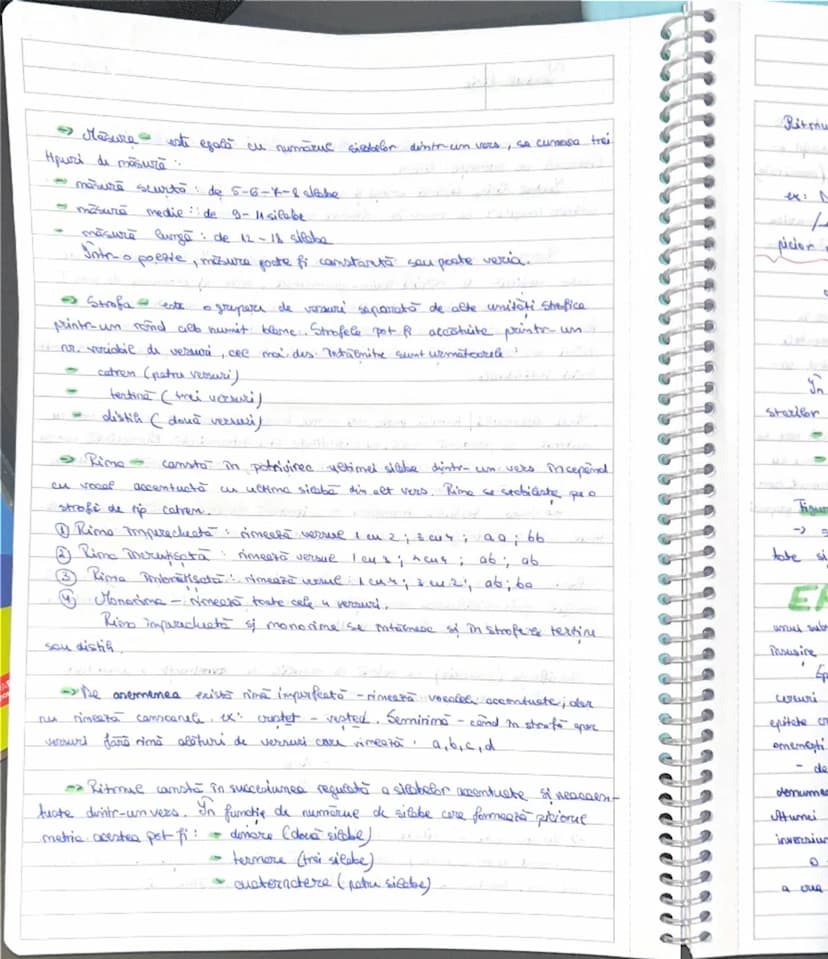 → Măsura - este egală cu numărul silabelor dintr-un vers, se cunosc trei
tipuri de măsură:
- măsură scurtă: de 5-6-7-8 silabe
- măsură medie: de 9-11 silabe
- măsură lungă: de 12-18 silabe
Într-o poezie, măsura poate fi constantă sau poate varia.
→ Strofa - este o grupare de versuri separată de alte unități strofice
printr-un rând alb numit blanc. Strofele pot fi alcătuite printr-un
nr. variabil de versuri, cele mai des întâlnite sunt următoarele:
- catren (patru versuri)
- terțină (trei versuri)
- distih (două versuri)
→ Rima - constă în potrivirea ultimei silabe dintr-un vers începând
cu vocal accentuată cu ultima silabă din alt vers. Rima se stabilește pe o
strofă de tip catren.
① Rima împerecheată: rimează versul 1 cu 2; 3 cu 4; aa; bb
② Rima încrucișată: rimează versul 1 cu 3; 2 cu 4; ab; ab
③ Rima îmbrățișată: rimează versul 1 cu 4; 3 cu 2; ab; ba
④ Monorima - rimează toate cele 4 versuri.
Rima împerecheată și monorima se întâlnesc și în strofele terține
sau distih.
→ De asemenea există rimă imperfectă - rimează vocalele accentuate, dar
nu rimează consoanele, ex: Semirimă - când în strofă apar
versuri fără rimă alături de versuri care rimează. a, b, c, d
→ Ritmul constă în succesiunea regulată a silabelor accentuate și neaccen-
tuate dintr-un vers. În funcție de numărul de silabe care formează piciorul
metric acestea pot fi: - binare (două silabe)
- ternare (trei silabe)
- (patru silabe)
Ritmu
ex:
picior
În
starilor
tate și
unui sub
însușire
epitete
omenești
- de
denumea
Atunci
inversiun
o
a